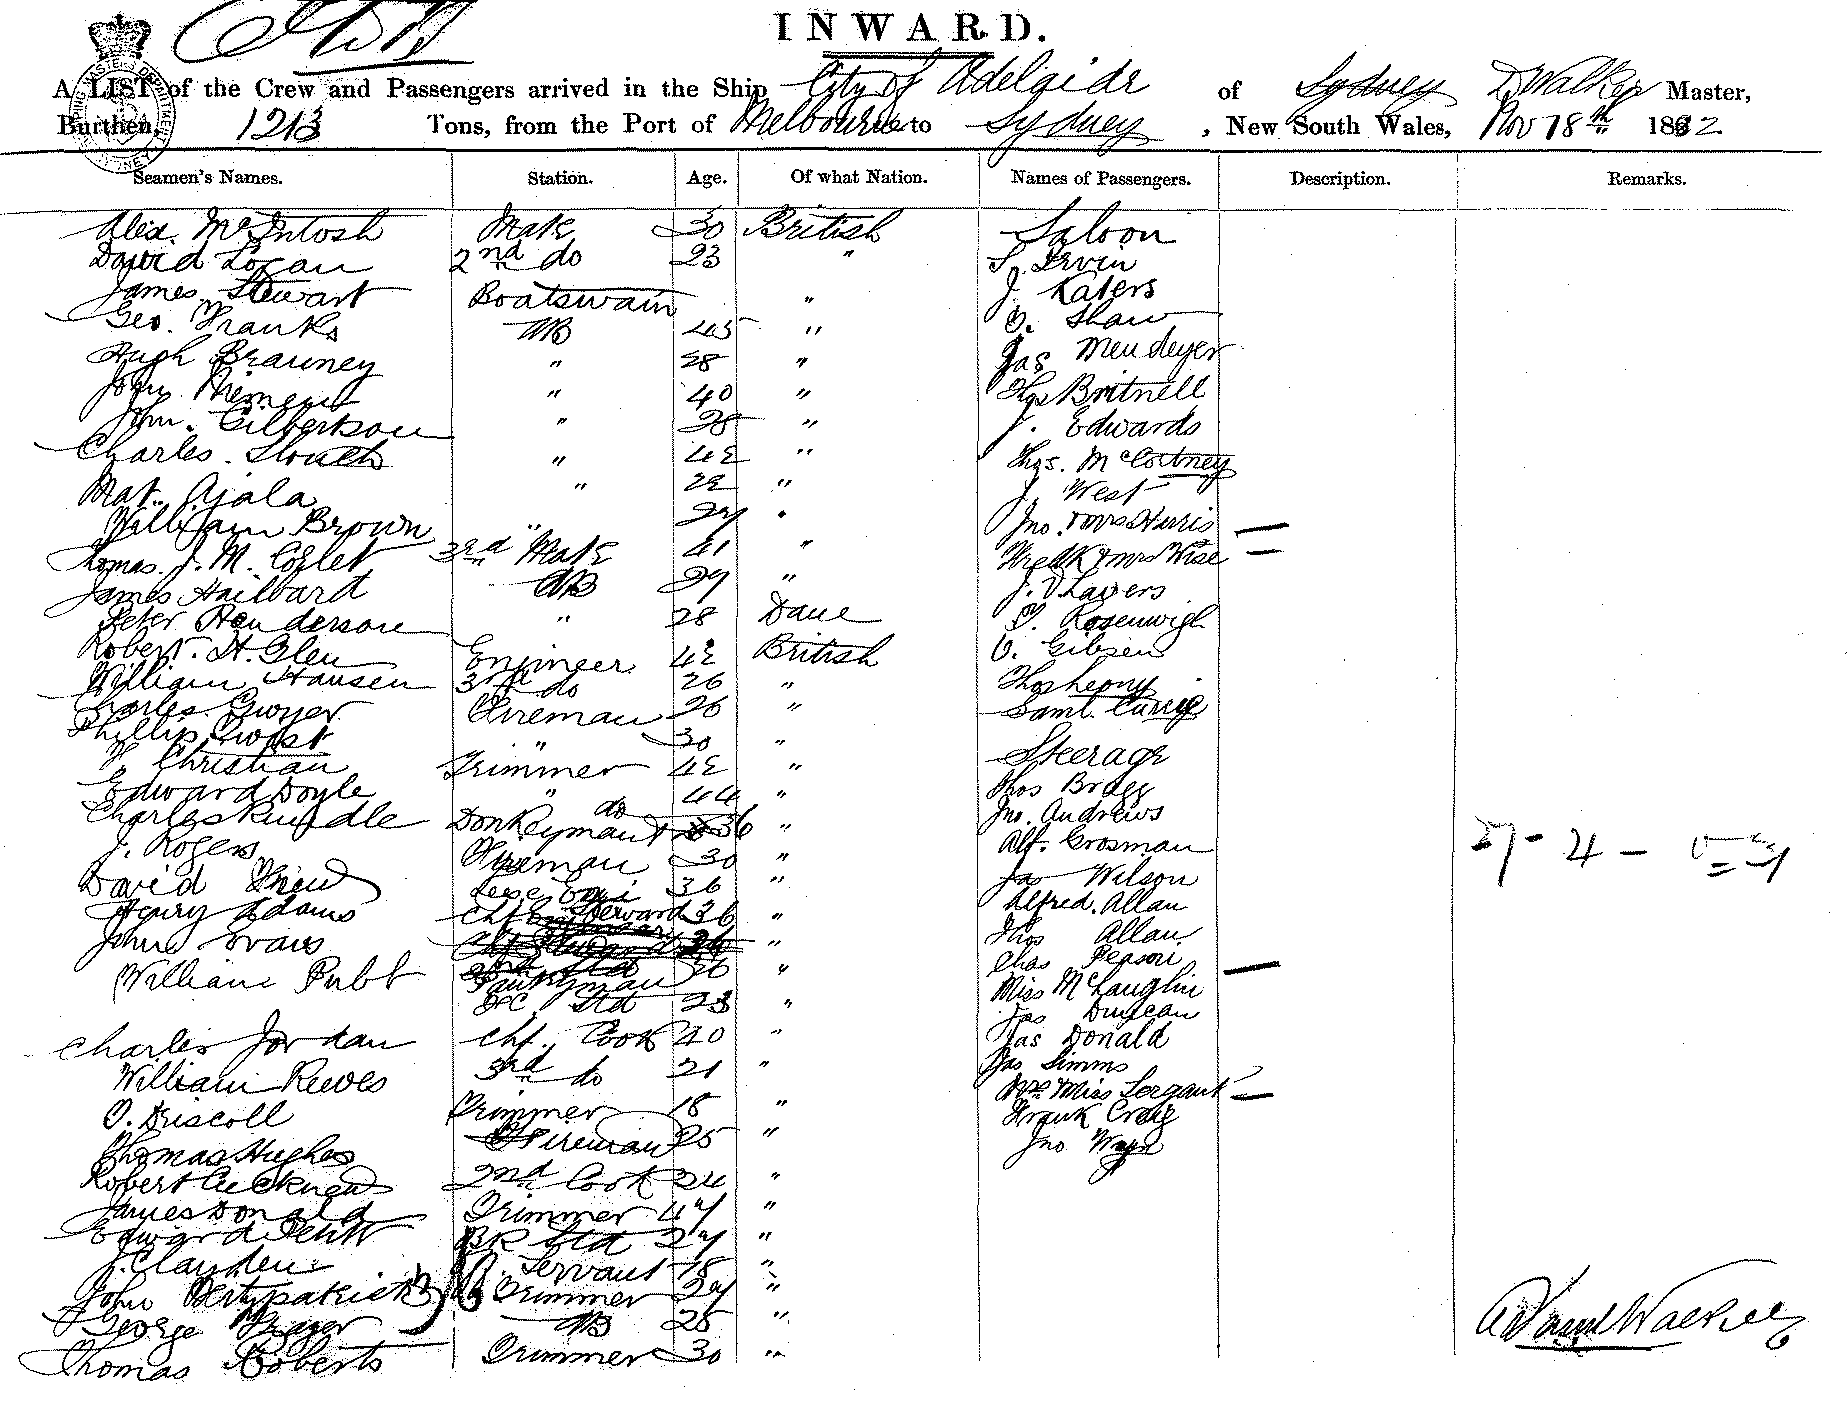 INWARD.
A LIST of the Crew and Passengers arrived in the Ship City of Adelaide of Sydney D Walker Master,
Burthen, 1213 Tons, from the Port of Melbourne to Sydney, New South Wales, Nov 18th 1882
Seamen's Names. Station. Age. Of what Nation. Names of Passengers. Description. Remarks.
Alex. McIntosh Mate 30 British Saloon
David Logan 2nd do 23 " S. Irvin
James Stewart Boatswain " J. Katers
Geo. Franks AB 45 " Shaw
Hugh Brauney " 28 " Jas
John " 40 " Thos Britnell
John. Gilbertson " 28 " J. Edwards
Charles. " 42 " Thos. McCortney
Mat. Ajala " 22 " J. West
William Brown " 27 " Jno. & Mrs Harris
Thomas. J. M. 3rd Mate 41 " Fredk & Mrs Wise
James Hailbard AB 29 " J. Lavers
Peter Henderson " 28 Dane Rosenwigh
Robert. H. Glen Engineer 42 British Gibsen
William Hansen 3rd do 26 " Thos heony
Charles Gwyer Fireman 26 " Saml. Currie
Phillip " 30 "
Christian Trimmer 42 " Steerage
Edward Doyle " 44 " Thos Bragg
Charles Rundle Donkeyman do 36 " Jno. Andrews
J. Rogers Fireman 30 " Alf. Crosman
David 36 " Jas Wilson
Henry Adams Chf Steward 36 " Alfred. Allan
John Evans " Thos Allan
William Pubt 26 " Chas Peason
Std 23 " Miss McLauglin
Jas Duncan
Charles Jordan Chf. Cook 40 " Jas Donald
William Reeves 3rd do 21 " Jas Simms
O. Driscoll Trimmer 18 " Mrs Miss Sergant
Thomas Hughes Fireman 25 " Frank Craig
Robert 2nd Cook 24 " Jno
James Donald Trimmer 47 "
Edward Petitt BR Std 27 "
J. Clayden Servant 18 "
John Fitzpatrick Trimmer 27 "
George Frazer AB 25 "
Thomas Roberts Trimmer 30 "
27 - 4 -
Walker